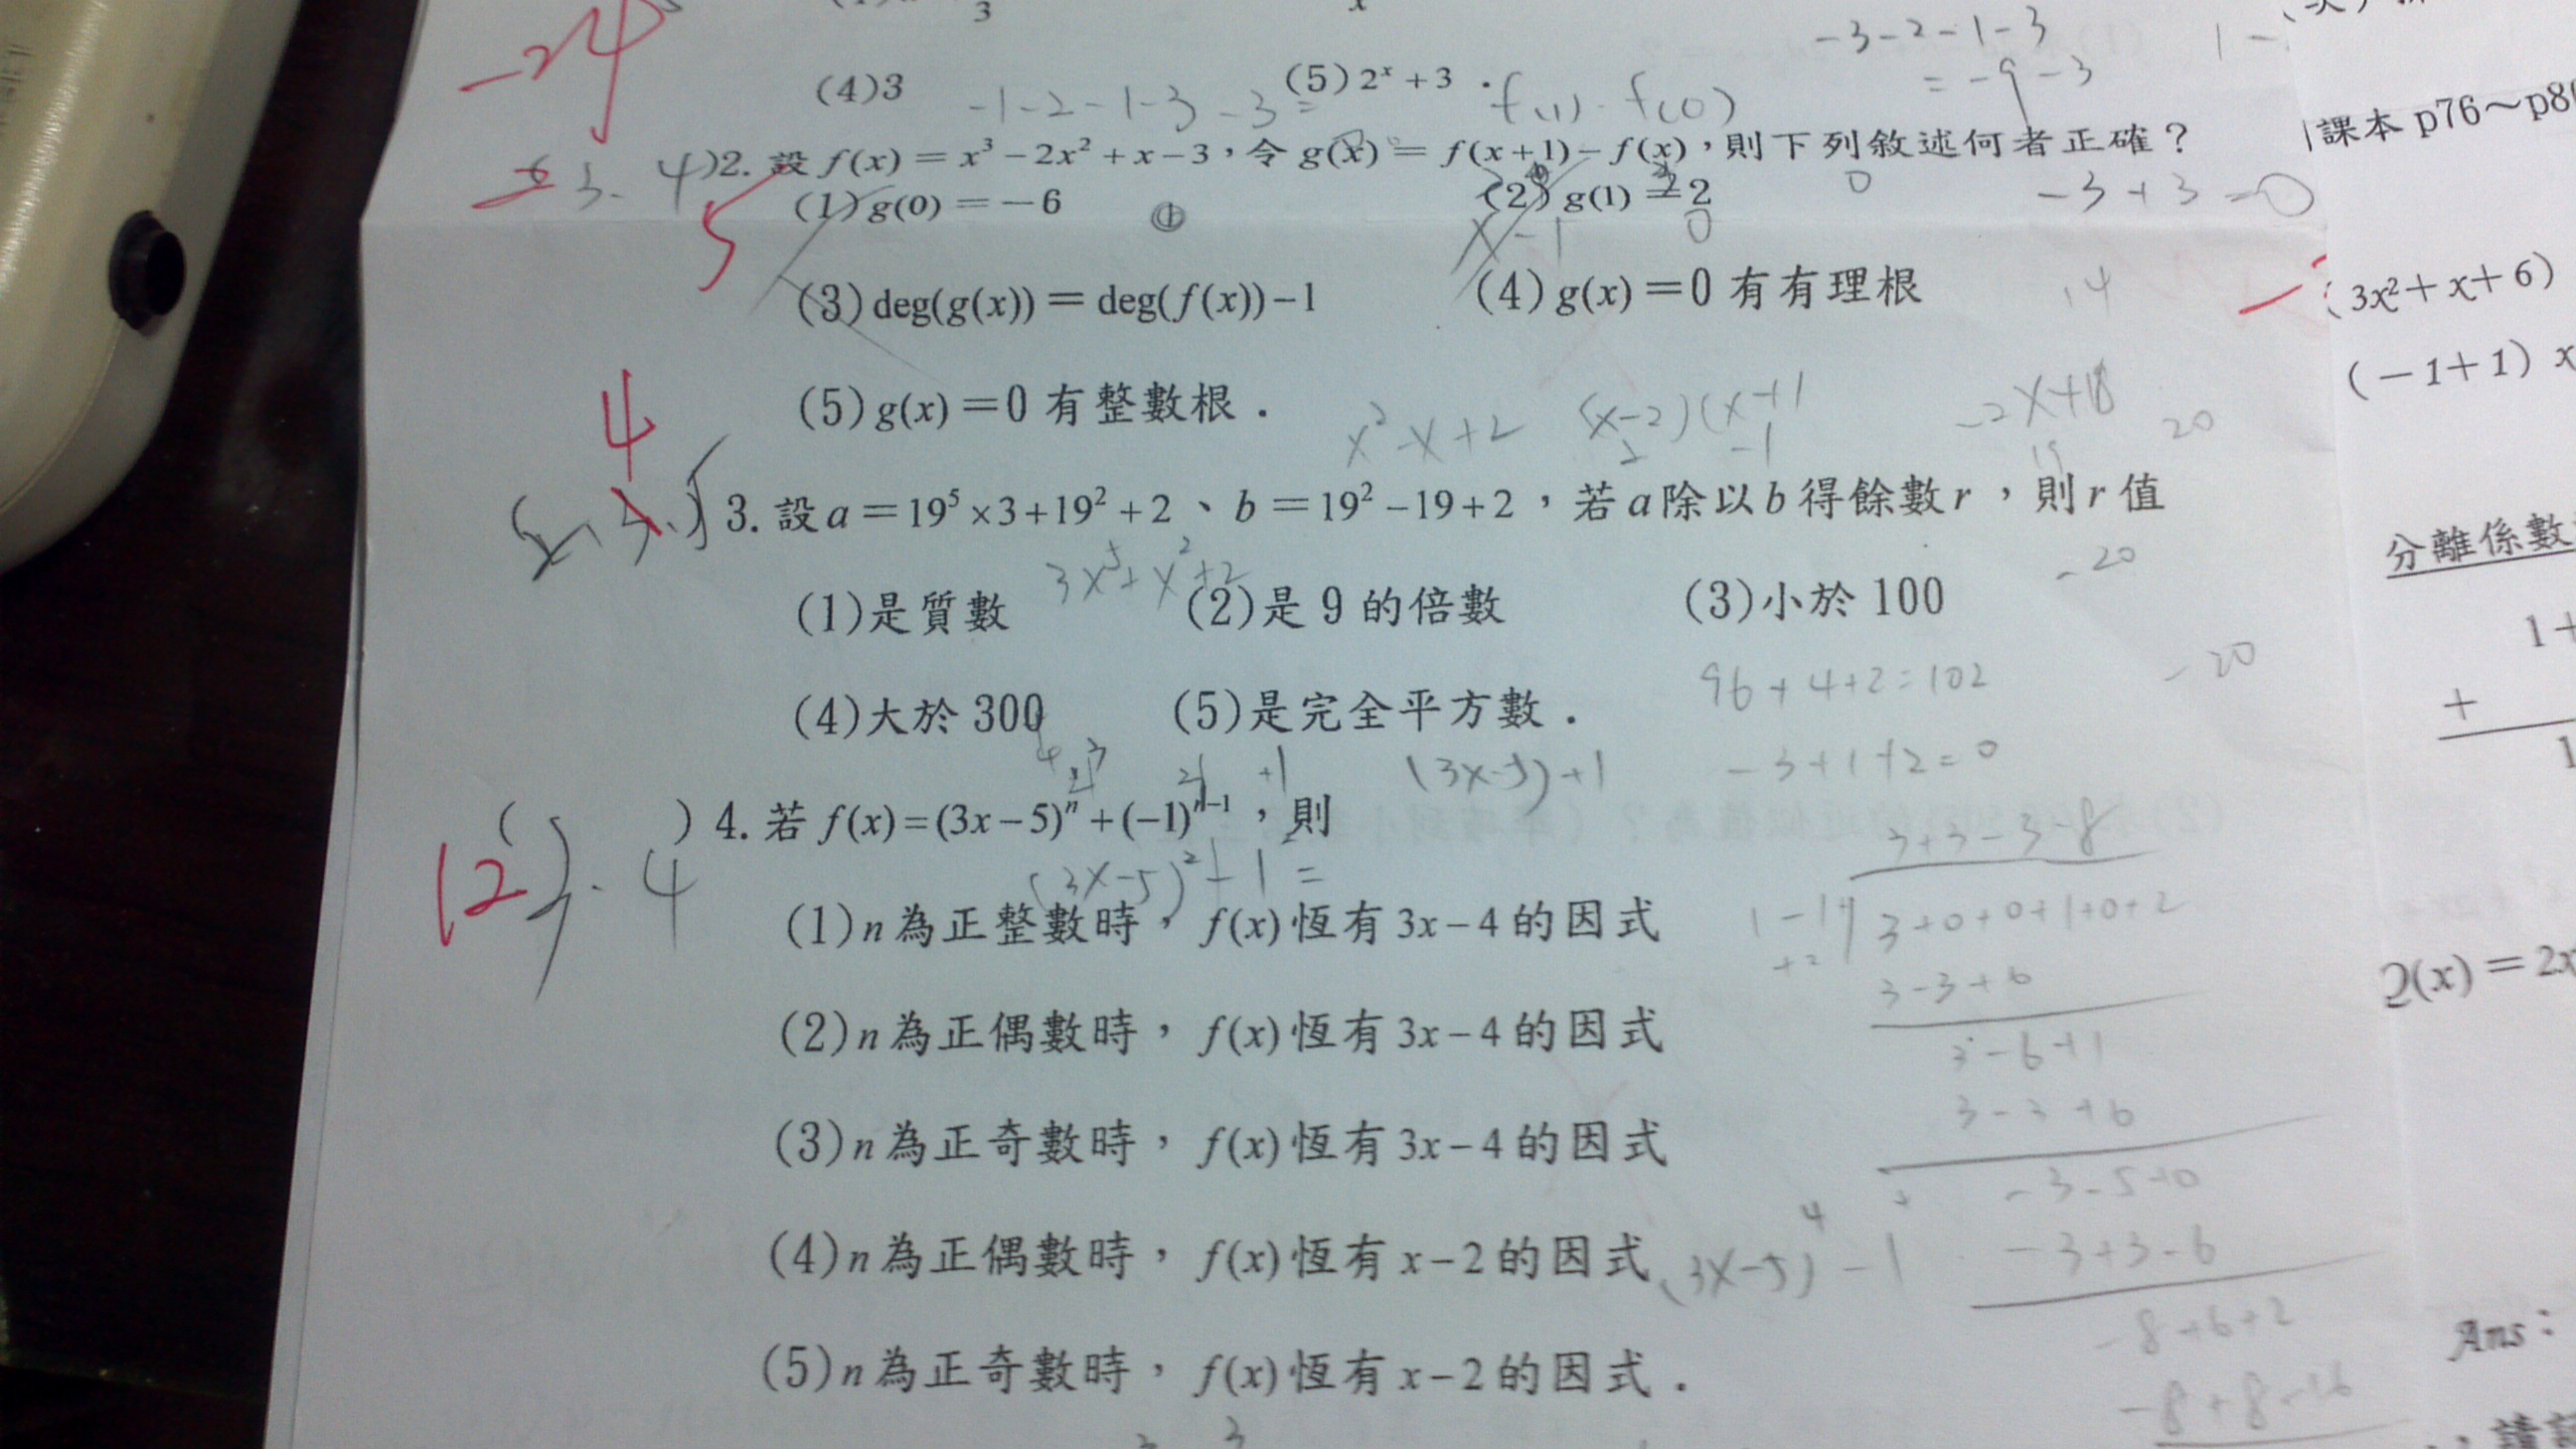 -24
3
x
(4)3
(5)2ˣ+3．
-1-2-1-3-3=
f(1)-f(0)
-3-2-1-3
=-9-3
3.4
)2.設 f(x)＝x³－2x²＋x－3，令 g(x)＝f(x＋1)－f(x)，則下列敘述何者正確？
5
(1) g(0)＝－6
(2) g(1)＝2
0
-3+3=0
x-1
0
(3) deg(g(x))＝deg(f(x))－1
(4) g(x)＝0 有有理根
14
(5) g(x)＝0 有整數根．
4
x²-x+2
(x-2)(x+1
2
-1
-2x+18
19
20
3.設 a＝19⁵×3＋19²＋2、b＝19²－19＋2，若 a 除以 b 得餘數 r，則 r 值
3x⁵+x²+2
-20
(1)是質數
(2)是 9 的倍數
(3)小於 100
96+4+2=102
-20
(4)大於 300
(5)是完全平方數．
(3x-5)+1
-3+1+2=0
( )4.若 f(x)＝(3x－5)ⁿ＋(－1)ⁿ⁻¹，則
(3x-5)²+1=
12
4
(1) n 為正整數時，f(x) 恆有 3x－4 的因式
(2) n 為正偶數時，f(x) 恆有 3x－4 的因式
(3) n 為正奇數時，f(x) 恆有 3x－4 的因式
(4) n 為正偶數時，f(x) 恆有 x－2 的因式
(3x-5)⁴-1
(5) n 為正奇數時，f(x) 恆有 x－2 的因式．
3+3-3-8
3+0+0+1+0+2
3-3+6
3-6+1
3-3+6
-3-5+0
-3+3-6
-8+6+2
-8+8-16
課本 p76～p8
(3x²＋x＋6)
(－1＋1) x
分離係數
1＋
＋
1
Q(x)＝2x
Ans：